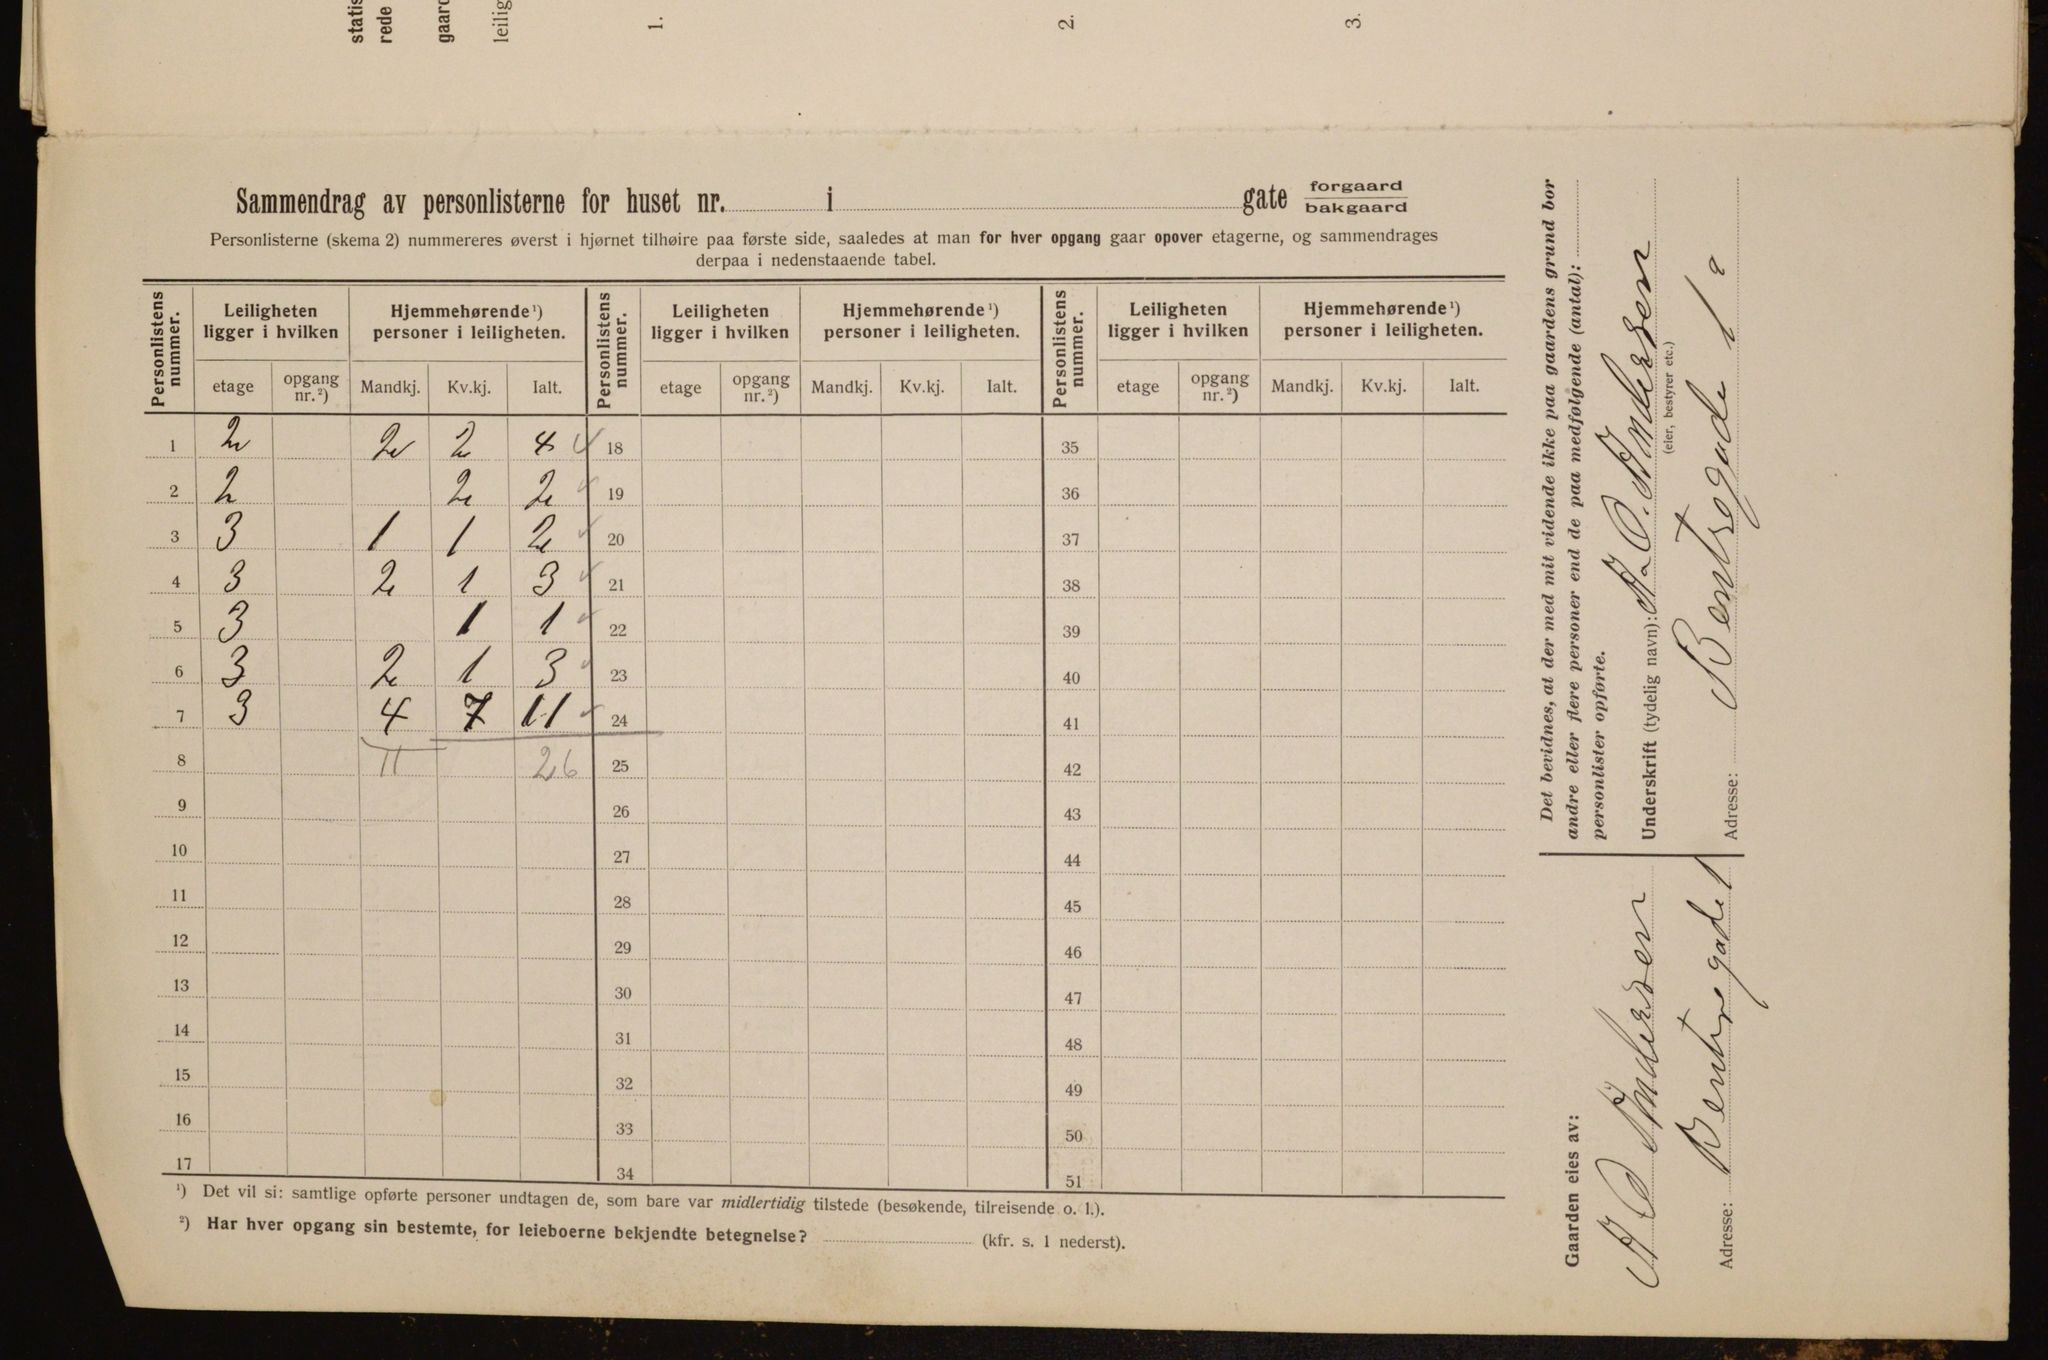 statis
rede
gaard
leilig
1.
2.
3.
Sammendrag av personlisterne for huset nr. i gate forgaard
bakgaard
Personlisterne (skema 2) nummereres øverst i hjørnet tilhøire paa første side, saaledes at man for hver opgang gaar opover etagerne, og sammendrages
derpaa i nedenstaaende tabel.
Personlistens nummer. Leiligheten ligger i hvilken Hjemmehørende ¹) personer i leiligheten. Personlistens nummer. Leiligheten ligger i hvilken Hjemmehørende ¹) personer i leiligheten. Personlistens nummer. Leiligheten ligger i hvilken Hjemmehørende ¹) personer i leiligheten.
etage opgang nr. ²) Mandkj. Kv.kj. Ialt. etage opgang nr. ²) Mandkj. Kv.kj. Ialt. etage opgang nr. ²) Mandkj. Kv.kj. Ialt.
1 2 2 2 4 4 18 35
2 2 2 2 19 36
3 3 1 1 2 20 37
4 3 2 1 3 21 38
5 3 1 1 22 39
6 3 2 1 3 23 40
7 3 4 7 11 24 41
8 11 26 25 42
9 26 43
10 27 44
11 28 45
12 29 46
13 30 47
14 31 48
15 32 49
16 33 50
17 34 51
¹) Det vil si: samtlige opførte personer undtagen de, som bare var midlertidig tilstede (besøkende, tilreisende o. l.).
²) Har hver opgang sin bestemte, for leieboerne bekjendte betegnelse? (kfr. s. 1 nederst).
Det bevidnes, at der med mit vidende ikke paa gaardens grund bor
andre eller flere personer end de paa medfølgende (antal):
personlister opførte.
Underskrift (tydelig navn): A. O. Andersen
(eier, bestyrer etc.)
Adresse: Bentsegade 1
Gaarden eies av:
A O Andersen
Adresse: Bentsegade 1